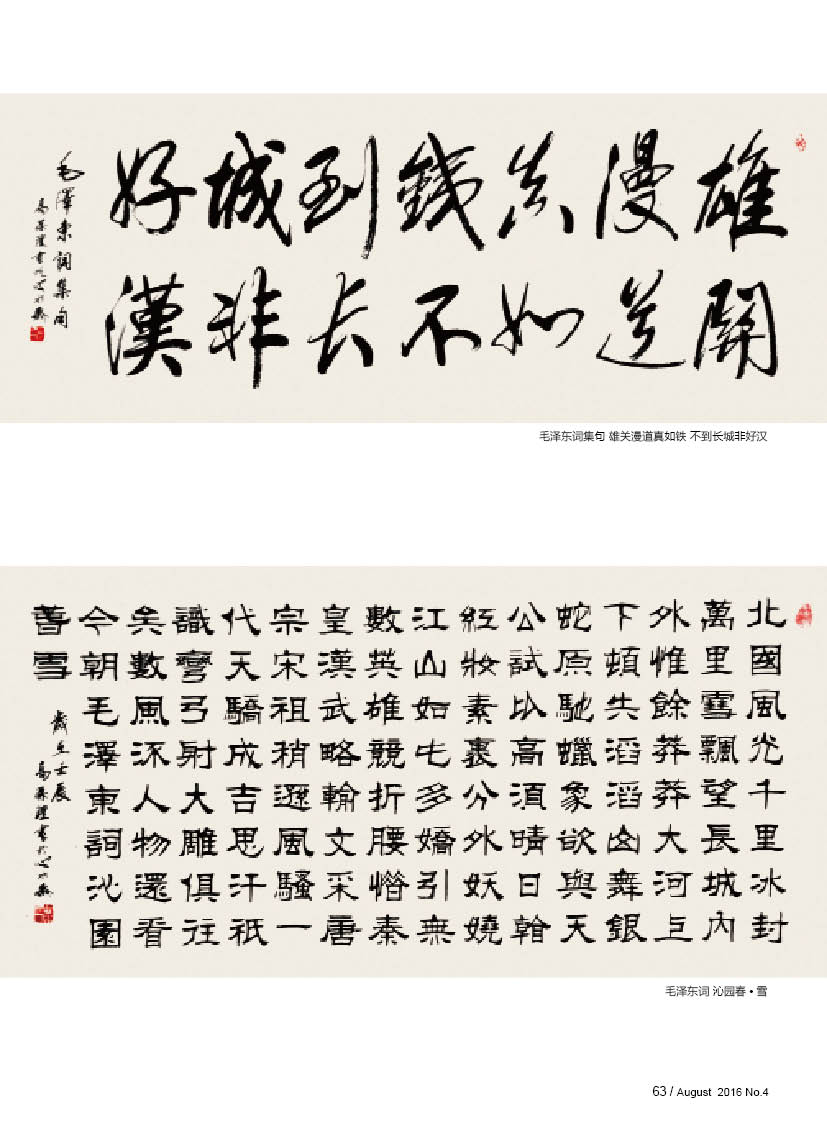 雄關
漫道
真如
鐵不
到長
城非
好漢
毛澤東詞集句
毛泽东词集句 雄关漫道真如铁 不到长城非好汉
北國風光千里冰封
萬里雪飄望長城內
外惟餘莽莽大河上
下頓失滔滔山舞銀
蛇原馳蠟象欲與天
公試比高須晴日看
紅妝素裹分外妖嬈
江山如此多嬌引無
數英雄競折腰惜秦
皇漢武略輸文采唐
宗宋祖稍遜風騷一
代天驕成吉思汗祇
識彎弓射大雕俱往
矣數風流人物還看
今朝毛澤東詞沁園
春雪
歲在壬辰
毛泽东词 沁园春•雪
63 / August 2016 No.4